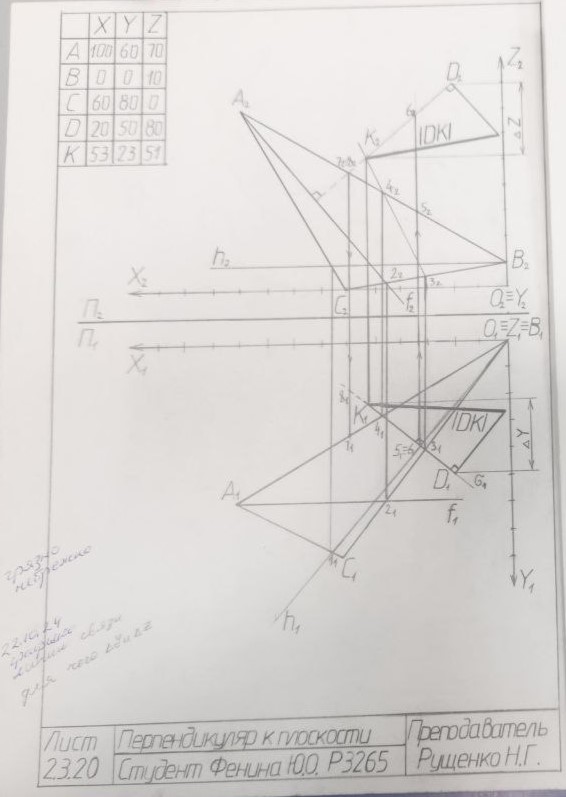 X Y Z
A 100 60 70
B 0 0 10
C 60 80 0
D 20 50 80
K 53 23 51
Z₂
D₂
A₂
6₂
ΔZ
K₂
|DK|
4₂
5₂
h₂
B₂
X₂
2₂
3₂
C₂
f₂
O₂≡Y₂
П₂
П₁
O₁≡Z₁≡B₁
X₁
8₁
K₁
4₁
|DK|
ΔY
1₁
5₁≡6₁
3₁
D₁
A₁
2₁
f₁
C₁
Y₁
h₁
грязно
небрежно
22.10.24
линии связи
для чего
Лист
23.20
Перпендикуляр к плоскости
Студент Фенина Ю.О. Р3265
Преподаватель
Рущенко Н.Г.